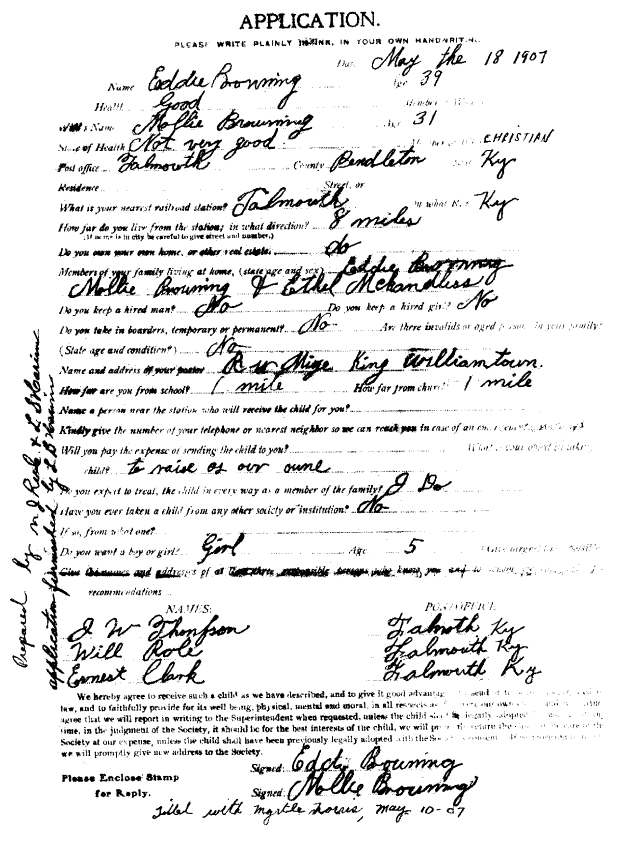 APPLICATION.
PLEASE WRITE PLAINLY IN INK, IN YOUR OWN HANDWRITING.
Date May the 18 1907
Name Eddie Browning Age 39
Health Good
Wife's Name Mollie Browning Age 31
State of Health Not very good. CHRISTIAN
Post office Falmouth County Pendleton Ky
Residence Street, or
What is your nearest railroad station? Falmouth Ky
How far do you live from the station; in what direction? 8 miles
(If home is in city be careful to give street and number.)
Do you own your own home, or other real estate. No
Members of your family living at home, (state age and sex) Eddie Browning
Mollie Browning & Ethel
Do you keep a hired man? No Do you keep a hired girl? No
Do you take in boarders, temporary or permanent? No Are there invalids or aged person in your family?
(State age and condition?) No
Name and address of your pastor King Williamtown.
How far are you from school? 1 mile How far from church? 1 mile
Name a person near the station who will receive the child for you?
Kindly give the number of your telephone or nearest neighbor so we can reach you in case of an emergency
Will you pay the expense of sending the child to you? What is your object in taking
child? to raise as our oune
Do you expect to treat, the child in every way as a member of the family? I Do
Have you ever taken a child from any other society or institution? No
If so, from what one?
Do you want a boy or girl? Girl Age 5
Give the names and addresses of at least three responsible persons who know you and to whom
recommendations
NAMES: POSTOFFICE
J W Thompson Falmoth Ky
Will Role Falmouth Ky
Ernest Clark Falmouth Ky
We hereby agree to receive such a child as we have described, and to give it good advantages
law, and to faithfully provide for its well being, physical, mental and moral, in all respects as
agree that we will report in writing to the Superintendent when requested, unless the child shall be legally adopted
time, in the judgment of the Society, it should be for the best interests of the child, we will
Society at our expense, unless the child shall have been previously legally adopted with the
we will promptly give new address to the Society.
Signed: Eddie Bowning
Please Enclose Stamp
for Reply.
Signed: Mollie Browning
Filled with Myrtle Norris, May 10-07
Prepared by
application furnished by